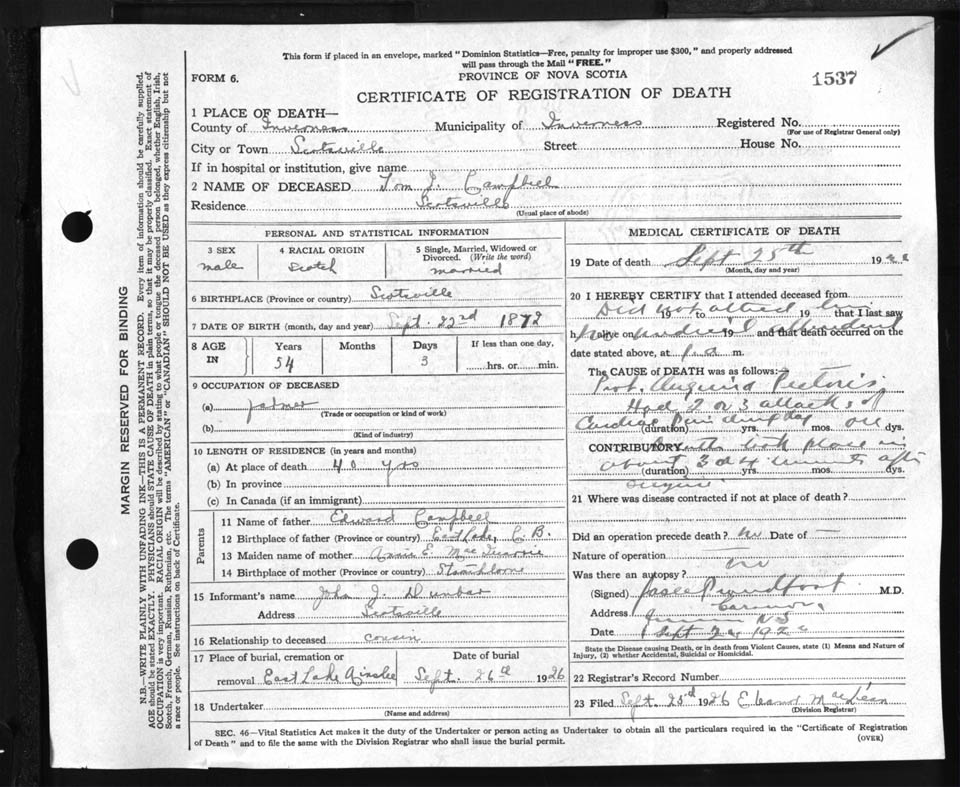 This form if placed in an envelope, marked "Dominion Statistics—Free, penalty for improper use $300," and properly addressed
will pass through the Mail "FREE."
FORM 6.
PROVINCE OF NOVA SCOTIA
1537
CERTIFICATE OF REGISTRATION OF DEATH
MARGIN RESERVED FOR BINDING
N.B.—WRITE PLAINLY WITH UNFADING INK—THIS IS A PERMANENT RECORD. Every item of information should be carefully supplied.
AGE should be stated EXACTLY. PHYSICIANS should STATE CAUSE OF DEATH in plain terms, so that it may be properly classified. Exact statement of
OCCUPATION is very important. RACIAL ORIGIN will be described by stating to what people or tongue the deceased person belonged, whether English, Irish,
Scotch, French, German, Russian, Ruthenian, etc. The terms "AMERICAN" or "CANADIAN" SHOULD NOT BE USED as they express citizenship but not
a race or people. See instructions on back of Certificate.
1 PLACE OF DEATH—
County of Inverness Municipality of Inverness Registered No.
(For use of Registrar General only)
City or Town Scotsville Street House No.
If in hospital or institution, give name
2 NAME OF DECEASED Tom J. Campbell
Residence Scotsville
(Usual place of abode)
PERSONAL AND STATISTICAL INFORMATION
3 SEX 4 RACIAL ORIGIN 5 Single, Married, Widowed or
Divorced. (Write the word)
male Scotch married
6 BIRTHPLACE (Province or country) Scotsville
7 DATE OF BIRTH (month, day and year) Sept. 22nd 1872
8 AGE IN Years Months Days If less than one day,
54 3 hrs. or min.
9 OCCUPATION OF DECEASED
(a) farmer
(Trade or occupation or kind of work)
(b)
(Kind of industry)
10 LENGTH OF RESIDENCE (in years and months)
(a) At place of death 40 yrs
(b) In province
(c) In Canada (if an immigrant)
Parents
11 Name of father Edward Campbell
12 Birthplace of father (Province or country) East Lake, C B.
13 Maiden name of mother Annie E. Mac
14 Birthplace of mother (Province or country) Strathlorne
15 Informant's name John J. Dunbar
Address Scotsville
16 Relationship to deceased cousin
17 Place of burial, cremation or Date of burial
removal East Lake Ainslie Sept. 26th 1926
18 Undertaker
(Name and address)
MEDICAL CERTIFICATE OF DEATH
19 Date of death Sept 25th 19
(Month, day and year)
20 I HEREBY CERTIFY that I attended deceased from
Did not attend him
19 to 19 that I last saw
h alive on 19 and that death occurred on the
date stated above, at m.
The CAUSE of DEATH was as follows:—
Prob. Angina Pectoris
Had 2 or 3 attacks of
Cardiac Pain during day
(duration) yrs. mos. dys.
CONTRIBUTORY Death took place in
about 3 or 4 minutes after
(duration) yrs. mos. dys.
21 Where was disease contracted if not at place of death?
Did an operation precede death? no Date of —
Nature of operation —
Was there an autopsy? no
(Signed) Proudfoot M.D.
Address
Inverness N S
Date Sept 1926
State the Disease causing Death, or in death from Violent Causes, state (1) Means and Nature of
Injury, (2) whether Accidental, Suicidal or Homicidal.
22 Registrar's Record Number
23 Filed Sept. 25th 1926 Eleanor MacLean
(Division Registrar)
SEC. 46—Vital Statistics Act makes it the duty of the Undertaker or person acting as Undertaker to obtain all the particulars required in the "Certificate of Registration
of Death" and to file the same with the Division Registrar who shall issue the burial permit.
(OVER)